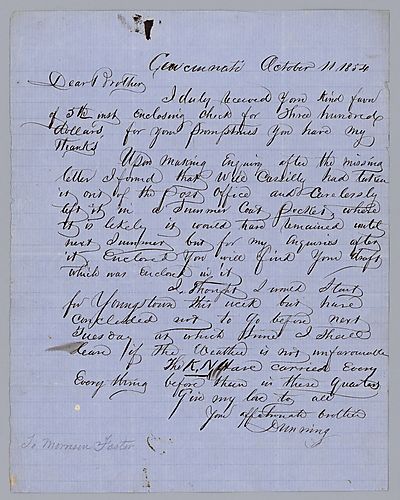 Cincinnati October 11 1854
Dear Brother
I duly received your kind favor
of 5th inst enclosing check for Three hundred
dollars, for your promptness you have my
thanks
Upon making enquiry after the missing
letter I found that Will Cassilly had taken
it out of the Post Office and Carelessly
left it in a Summer Coat Pocket where
it is likely it would have remained until
next Summer but for my enquiries after
it Enclosed you will find your draft
which was enclosed in it
I thought I would start
for Youngstown this week but have
concluded not to go before next
Tuesday at which time I shall
leave if the weather is not unfavourable
The K.N. have carried Every
Every thing before them in these quarters
Give my love to all
Your affectionate brother
Dunning
To Morrison Foster